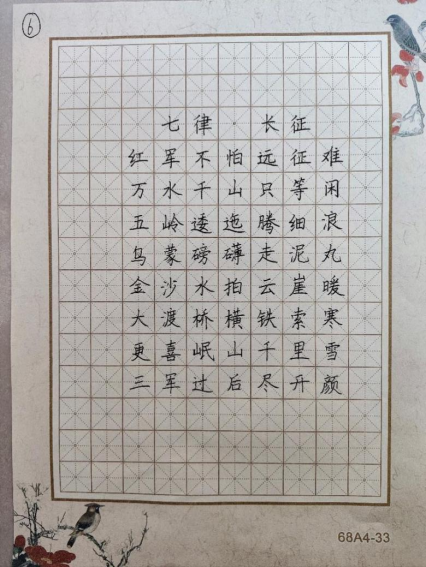 6
七律·长征
红军不怕远征难
万水千山只等闲
五岭逶迤腾细浪
乌蒙磅礴走泥丸
金沙水拍云崖暖
大渡桥横铁索寒
更喜岷山千里雪
三军过后尽开颜
68A4-33